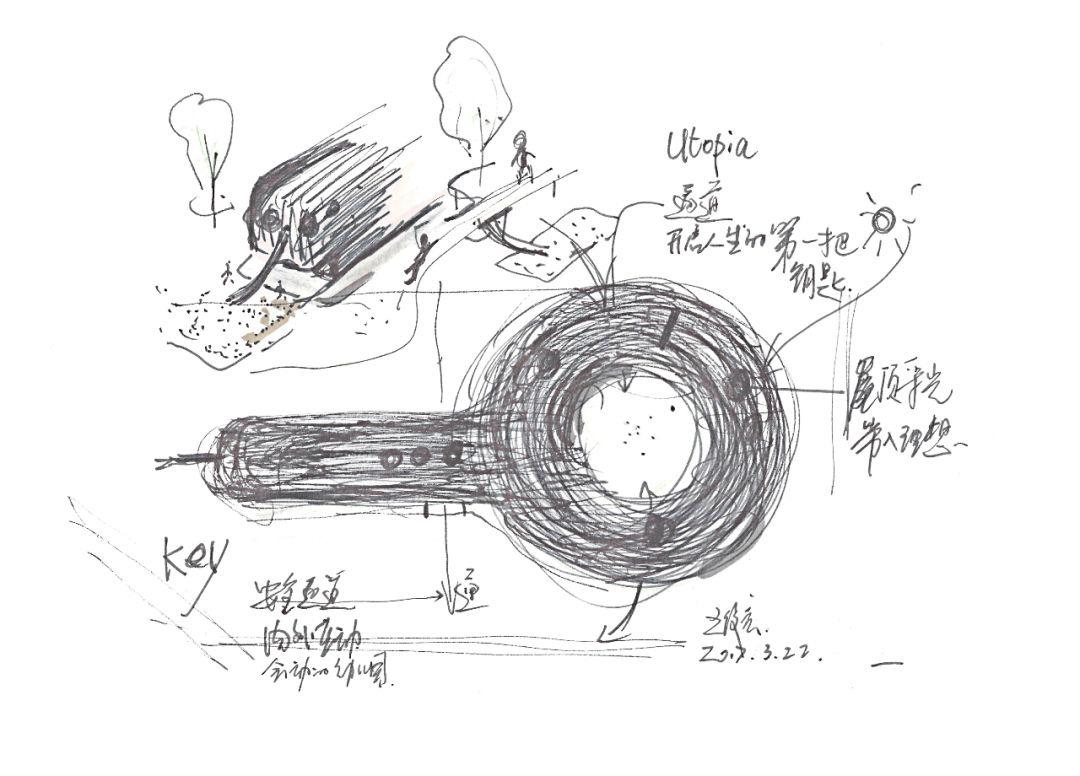 Utopia
通道
开启人生的第一把
钥匙.
屋顶采光
带入理想
Key
安全通道
通
内外互动
会动的幼儿园.
2017.3.22.